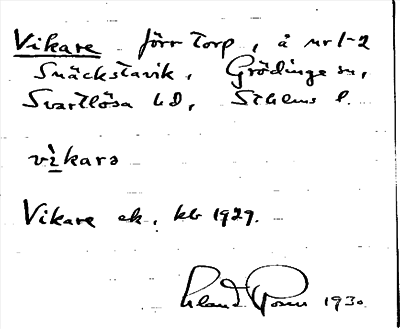 Vikare förr torp, å nr 1-2
Snäckstavik, Grödinge sn,
Svartlösa hd, Sthlms l.
vìkarə
Vikare ek. kb 1929.
1930